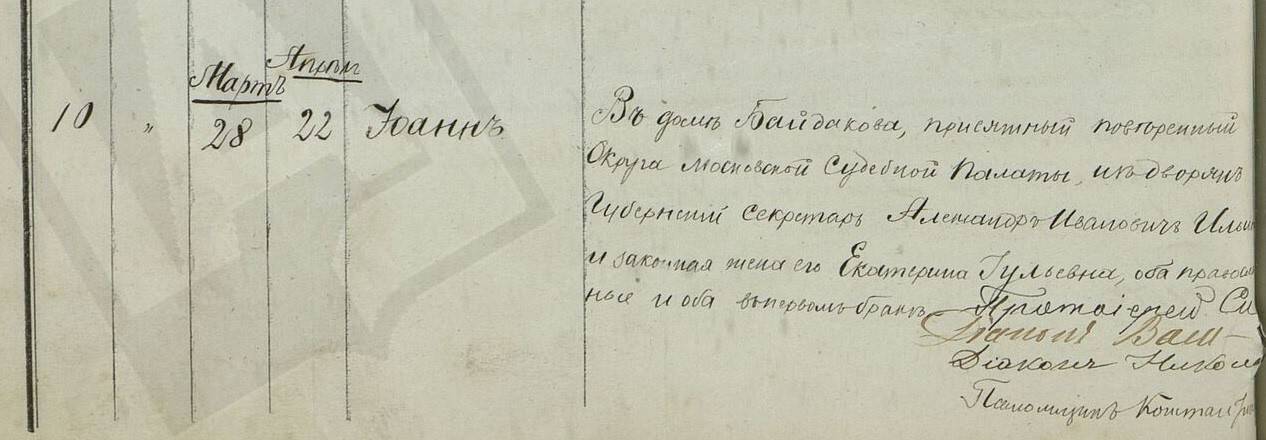 Мартъ Апрѣл
10 „ 28 22 Іоаннъ
Въ домѣ Байдакова, присяжный повѣренный
Округа Московской Судебной Палаты, изъ дворянъ
Губернскій Секретарь Александръ Ивановичъ Ильин
и законная жена его Екатерина Іульевна, оба правосла
ные и оба въ первомъ бракѣ Протоіерей
Діаконъ Васи
Діаконъ Никола
Псаломщикъ